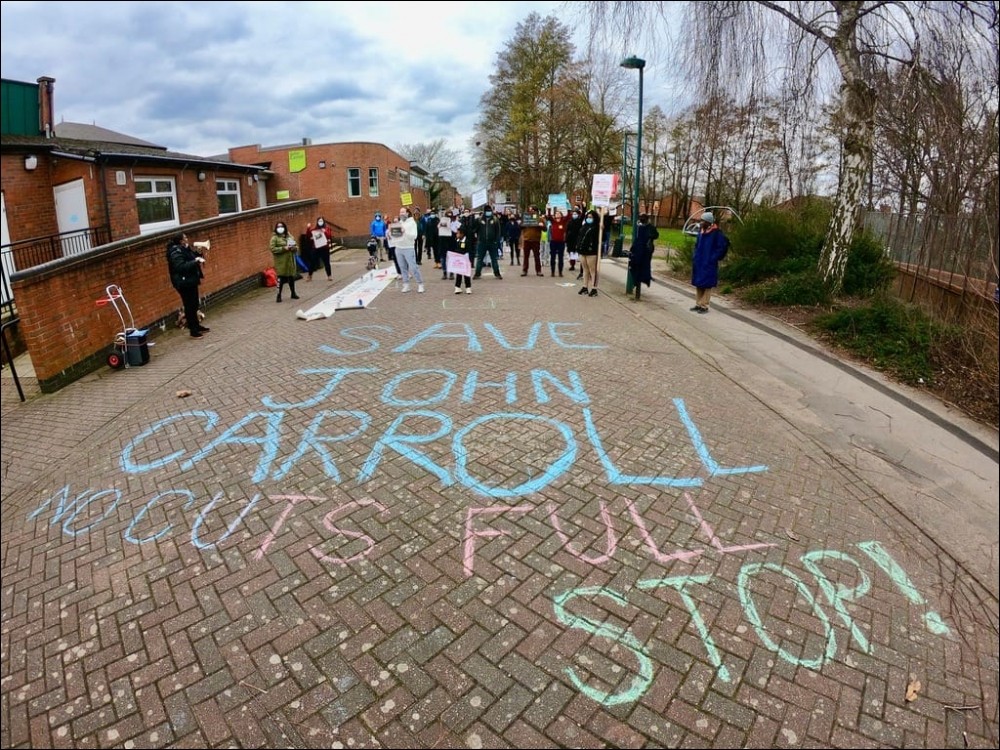 SAVE
JOHN
CARROLL
NO CUTS FULL
STOP!